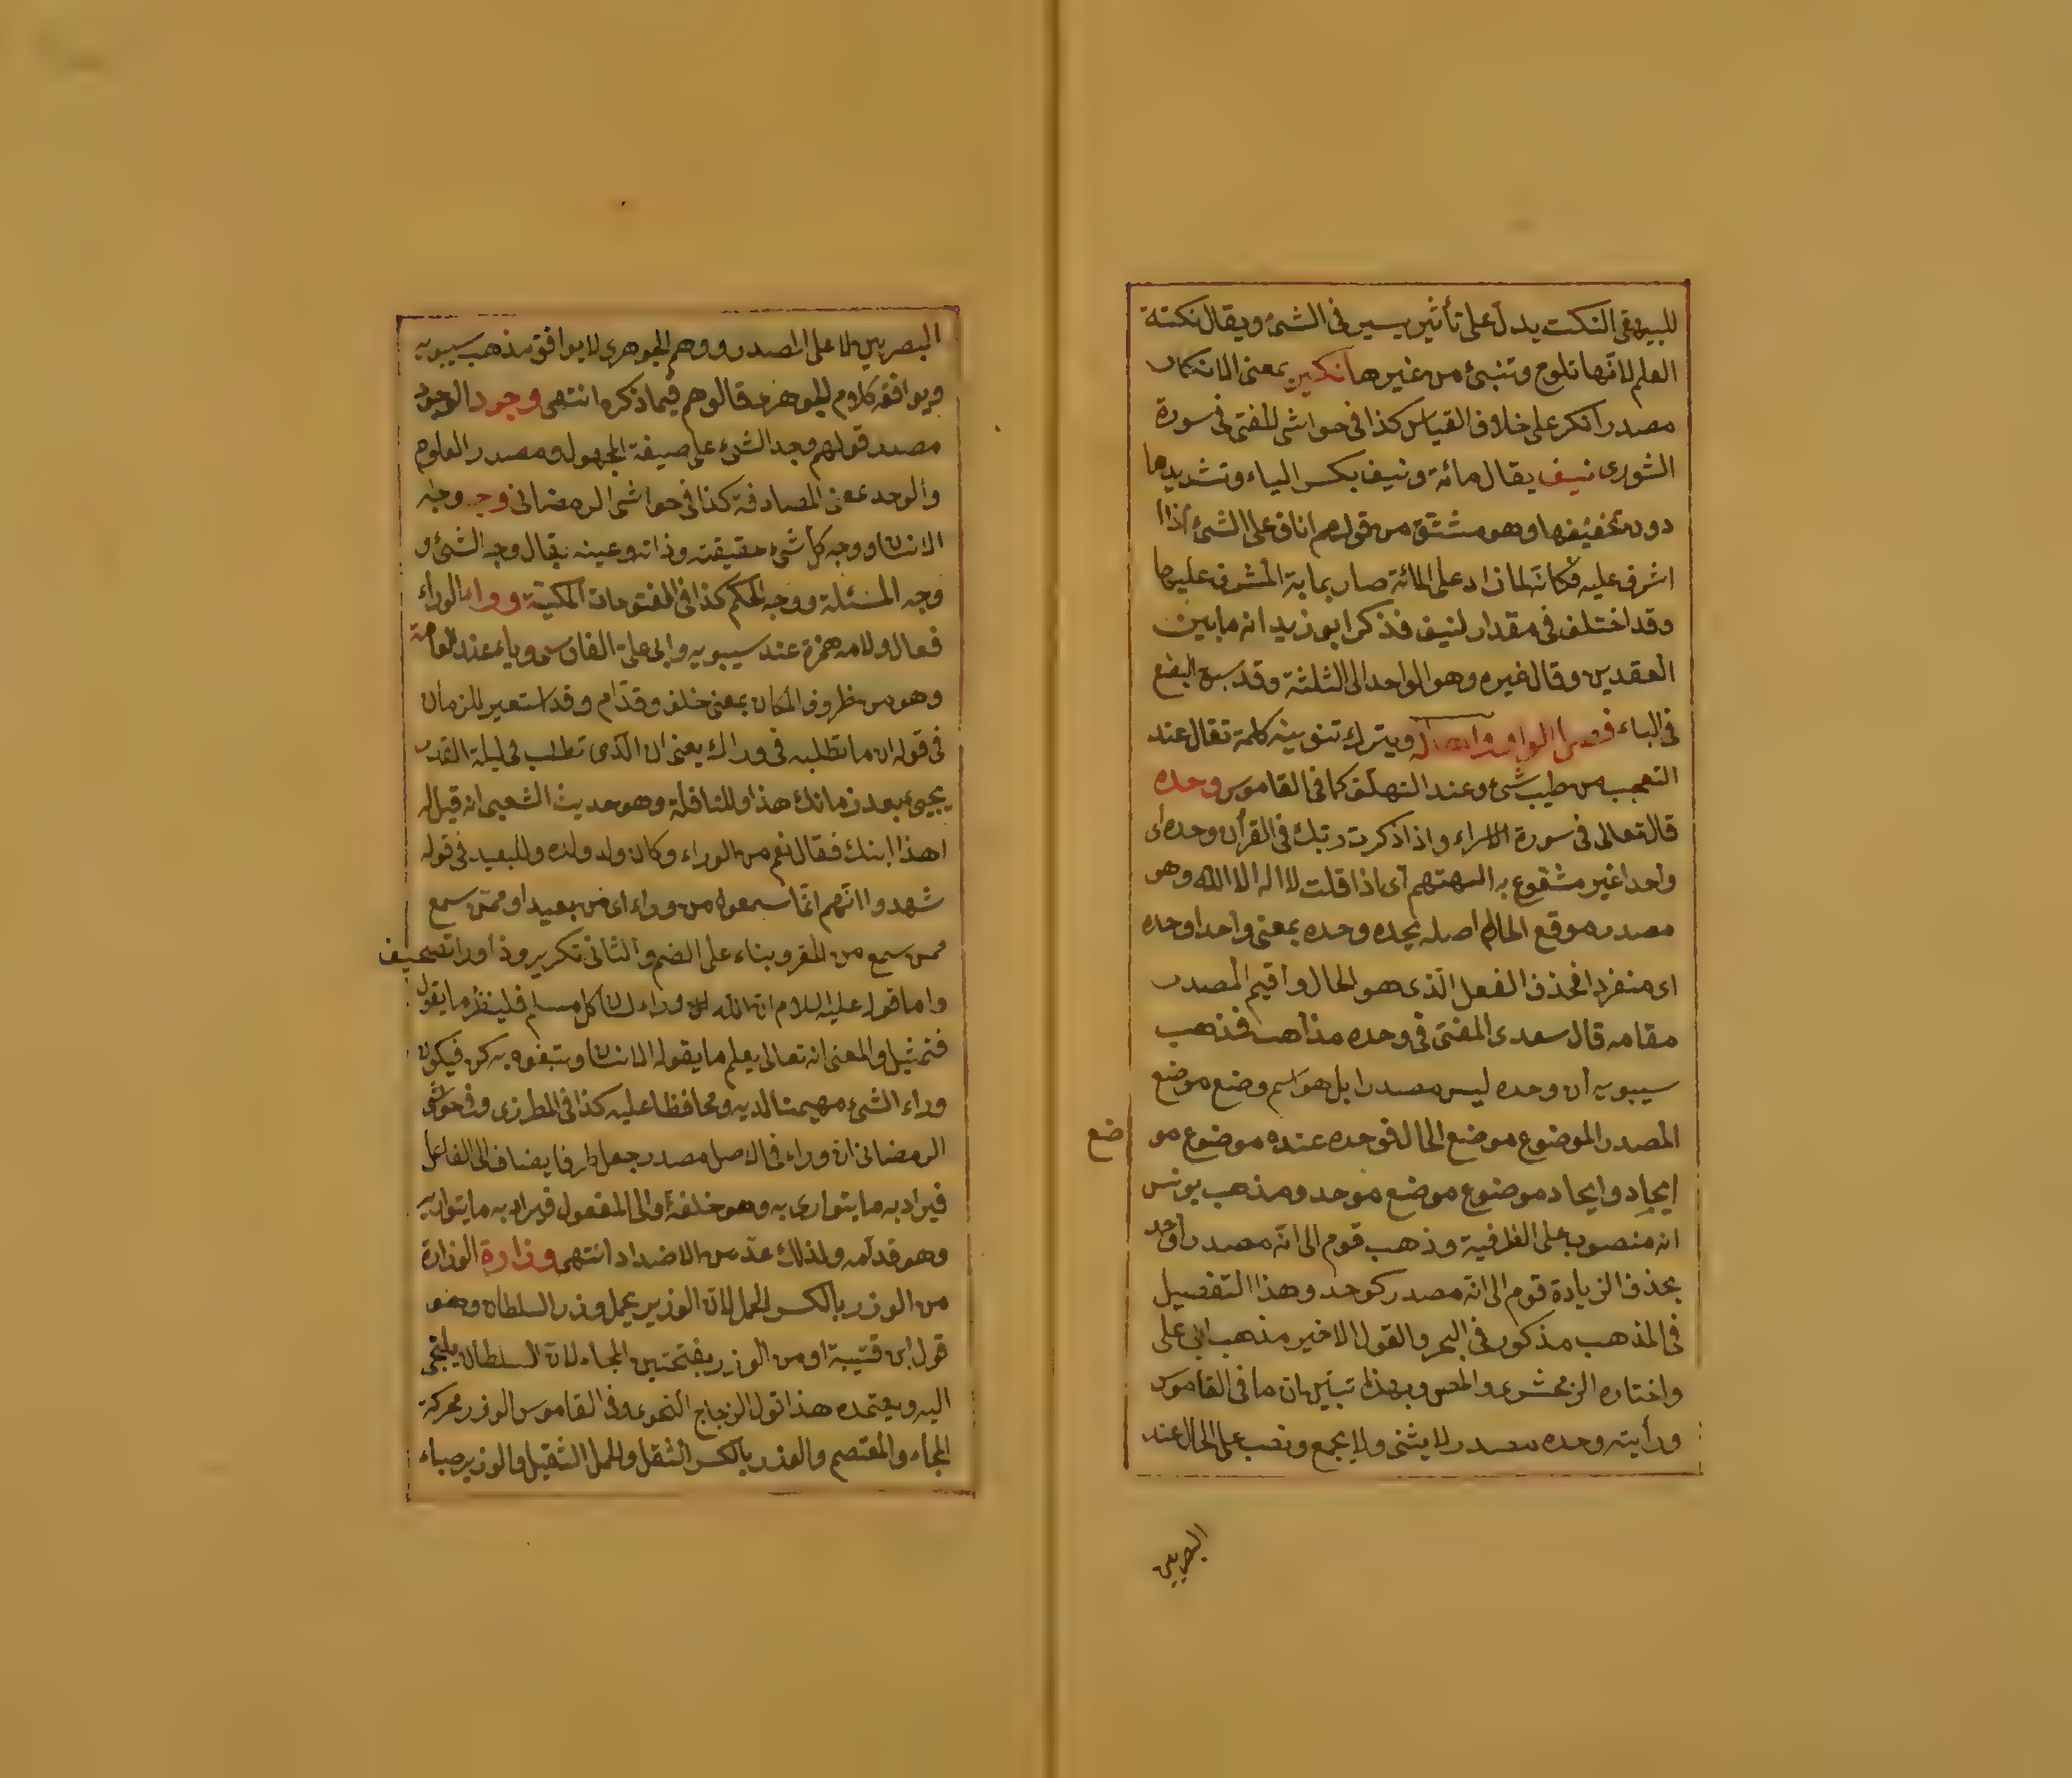 للبيهقى النكت يدل على تأثير يسير فى الشئ ويقال نكتة
العلم لانها تلوح وتنبئ من غيرها نكير بمعنى الانكار
مصدر انكر على خلاف القياس كذا فى حواشى المفتى فى سورة
الشورى نيف يقال مائة ونيف بكسر الياء وتشديدها
دون تخفيفها وهو مشتق من قولهم اناف على الشئ اذا
اشرف عليه فكانه لما زاد على المائة صار بمابة المشرف عليها
وقد اختلف فى مقدار لنيف فذكر ابو زيد انه ما بين
العقدين وقال غيره وهو الواحد الى الثلثة وقد سبق البضع
فى الباء فصل الواو واها له ويترك تنوينه كلمة تقال عند
التعجب من طيب شئ وعند التهلف كما فى القاموس وحده
قال تعالى فى سورة الاسراء واذا ذكرت ربك فى القرأن وحده اى
واحدا غير مشفوع به الهتهم اى اذا قلت لا اله الا الله وهو
مصدر موقع الحال اصله يحده وحده بمعنى واحدا وحده
اى منفردا فحذف الفعل الذى هو الحال واقيم المصدر
مقامه قال سعدى المفتى فى وحده مذاهب فذهب
سيبويه أن وحده ليس مصدرا بل هو اسم وضع موضع
المصدر الموضوع موضع الحال فوحده عنده موضوع مو ضع
ايجاد وايحاد موضوع موضع موحد ومذهب يونس
انه منصوب على الظرفية وذهب قوم الى انه مصدر اوحد
بحذف الزيادة قوم الى انه مصدر كوحد وهذا التفصيل
فى المذهب مذكور فى البحر والقول الاخير مذهب ابى على
واختاره الزمخشرى وبهذا تبين ان ما فى القاموس
ورأيته وحده مصدر لا يثنى ولا يجمع ونصب على الحال عند
البصريين
البصريين لا على المصدر ووهم الجوهرى لا يوافق مذهب سيبويه
ويوافقه كلام الجوهرى فيما ذكره انتهى وجود الوجود
مصدر قولهم وجد الشئ على صيغة المجهول ومصدر المعلوم
والوجد بمعنى المصادفة كذا فى حواشى الرمضانى وجه وجه
الانسان ووجه كل شئ حقيقته وذاته وعينه يقال وجه الشئ و
وجه المسئلة ووجه الحكم كذا فى الفتوحات المكية ووراء الوراء
فعال ولامه همزة عند سيبويه وابى على الفارسى وياء عند العامة
وهو من ظروف المكان بمعنى خلف وقدام وقد استعير للزمان
فى قوله ان ما تطلبه فى وراك يعنى ان الذى تطلب فى ليلة القدر
يجيئ بعد زمانك هذا وللنافلة وهو حديث الشعبى انه قيل له
اهذا ابنك فقال نعم من الوراء وكان ولد ولده وللبعيد فى قوله
شهدوا انهم انما سمعوه من وراء اى من بعيد او ممن سمع
ممن سمع من المقر وبناء على الضم والثانى تكرير وذا ورا تصحيف
واما قوله عليه السلام ان الله وراء لسان كل مسلم فلينظر ما يقول
فتمثيل والمعنى انه تعالى يعلم ما يقوله الانسان ويتفوه به كن فيكون
وراء الشئ مهيمنا لديه ومحافظا عليه كذا فى المطرزى وفى حواشى
الرمضانى ان وراء فى الاصل مصدر جعل ظرفا يضاف الى الفاعل
فيراد به ما يتوارى به وهو خلفه أو الى المفعول فيراد به ما يتواريه
وهو قدامه ولذلك عد من الاضداد انتهى وزارة الوزارة
من الوزر بالكسر الحمل لان الوزير يحمل وزر السلطان وهو
قول ابن قتيبة او من الوزر بفتحتين الملجاء لان السلطان يلتجى
اليه ويعتمده هذا قول الزجاج النحوى وفى القاموس الوزر محركة
الملجاء والمعتصم والوزر بالكسر الثقل والحمل الثقيل والوزير حباء